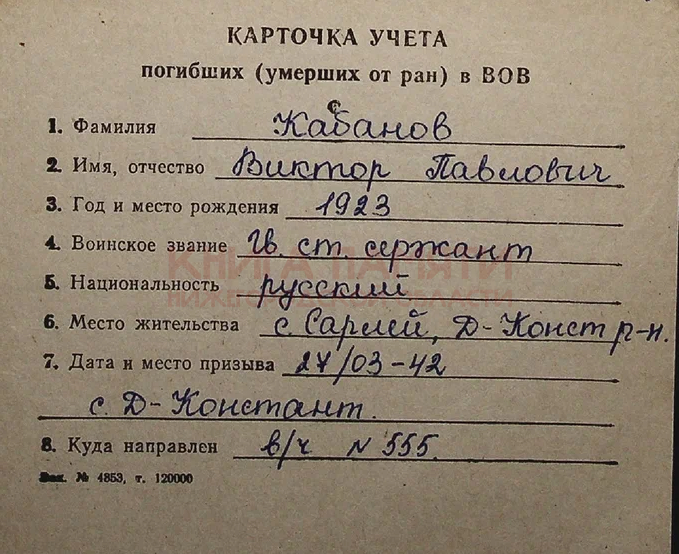 КАРТОЧКА УЧЕТА
погибших (умерших от ран) в ВОВ
1. Фамилия Кабанов
2. Имя, отчество Виктор Павлович
3. Год и место рождения 1923
4. Воинское звание Гв. ст. сержант
КНИГА ПАМЯТИ
5. Национальность русский
НИЖЕГОРОДСКОЙ ОБЛАСТИ
6. Место жительства с. Сарлей, Д-Конст р-н.
7. Дата и место призыва 27/03-42
с. Д-Констант.
8. Куда направлен в/ч N 555.
Зак. № 4853, т. 120000